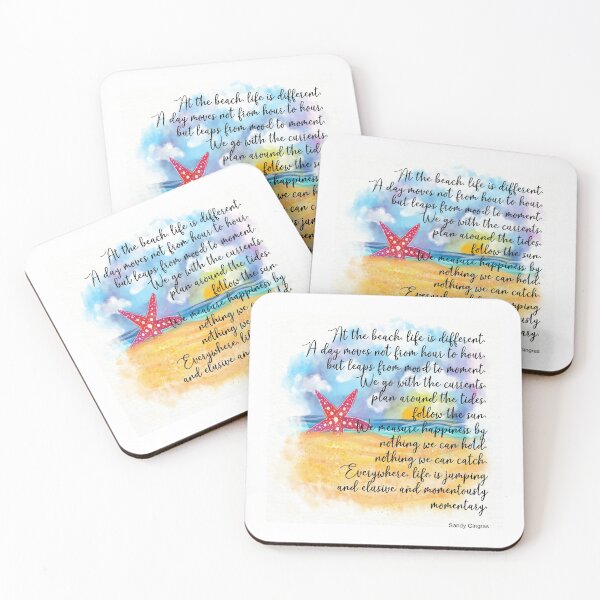 At the beach, life is different.
A day moves not from hour to hour,
but leaps from mood to moment.
We go with the currents,
plan around the
follow the
At the beach, life is different.
A day moves not from hour to hour,
but leaps from mood to moment.
We go with the currents,
plan around the tides,
follow the sun.
We measure happiness by
nothing we can hold,
nothing we can catch.
Gingras
At the beach, life is different.
A day moves not from hour to hour,
but leaps from mood to moment.
We go with the currents,
plan around the tides,
follow the sun.
We measure happiness by
nothing we
nothing
Everywhere,
and elusive and
At the beach, life is different.
A day moves not from hour to hour,
but leaps from mood to moment.
We go with the currents,
plan around the tides,
follow the sun.
We measure happiness by
nothing we can hold,
nothing we can catch.
Everywhere, life is jumping
and elusive and momentously
momentary.
Sandy Gingras